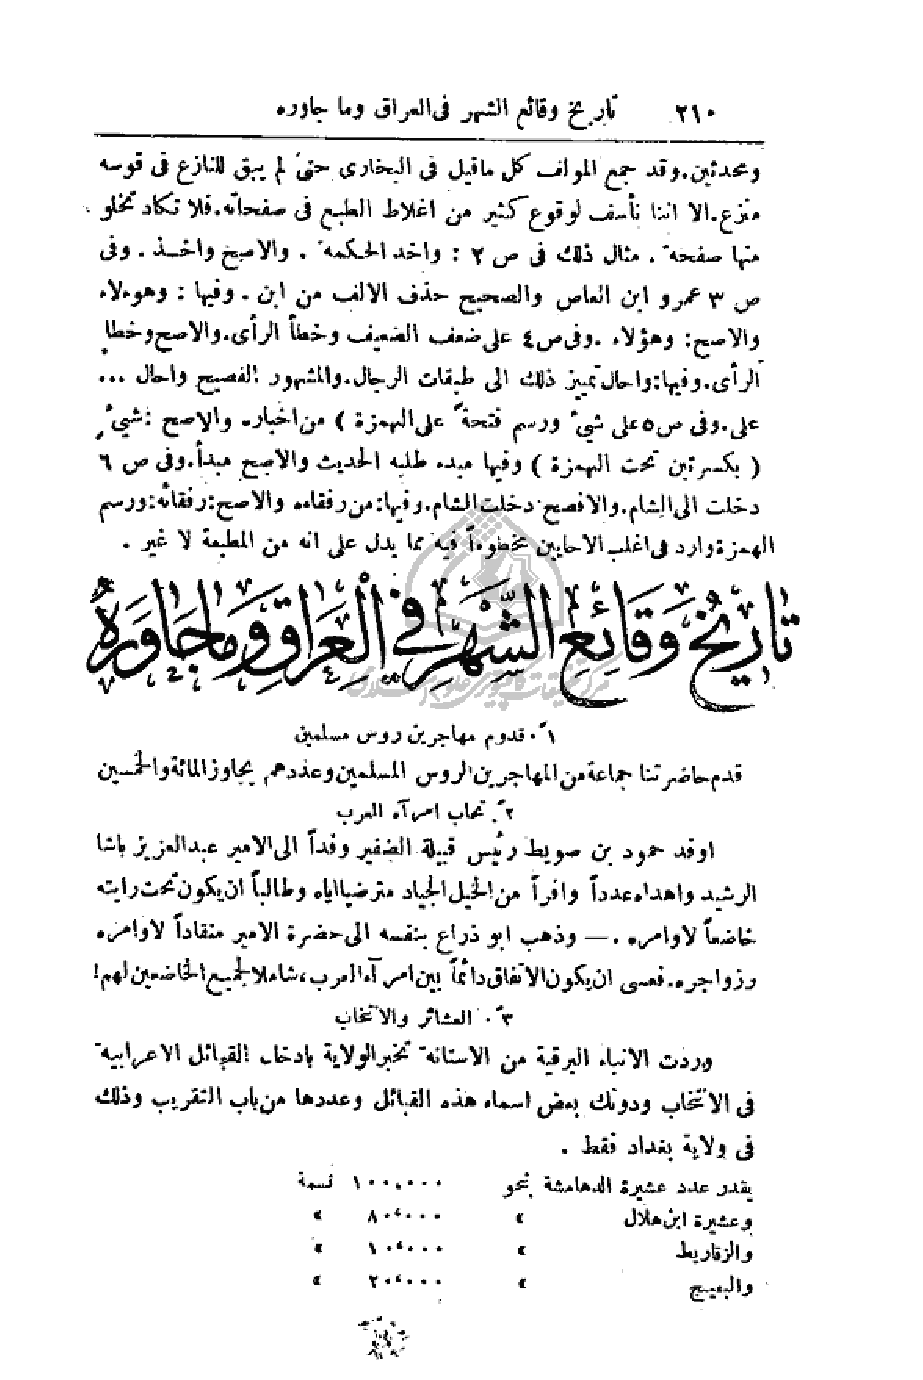 ٢١٠ تاريخ وقائع الشهر فى العراق وما جاوره
ومحدثين. وقد جمع المولف كل ماقيل فى البخارى حتى لم يبق للنازع فى قوسه
منزع. الا اننا نأسف لوقوع كثير من اغلاط الطبع فى صفحاته. فلا تكاد تخلو
منها صفحة. مثال ذلك فى ص ٢ : واخد الحكمة . والاصح واخـذ . وفى
ص ٣ عمرو ابن العاص والصحيح حذف الالف من ابن . وفيها : وهوءلاء
والاصح : وهؤلاء . وفى ص ٤ على ضعف الضعيف وخطأ الرأى. والاصح وخطإ
الرأى. وفيها: واحال تمييز ذلك الى طبقات الرجال. والمشهور الفصيح واحال ...
على. وفى ص ٥ على شيئ ورسم فتحة على الهمزة ) من اخباره والاصح : شيئ
( بكسرتين تحت الهمزة ) وفيها مبده طلبه الحديث والاصح مبدأ. وفى ص ٦
دخلت الى الشام. والافصح دخلت الشام. وفيها: من رفقاءه والاصح: رفقائه: ورسم
الهمزة وارد فى اغلب الاحايين مخطوءاً فيه مما يدل على انه من المطبعة لا غير .
تَاريْخُ وَقَائِعِ الشَّهْرِ فِي الْعِرَاقِ وَمَا جَاوَرَهُ
١ً. قدوم مهاجرين روس مسلمين
قدم حاضرتنا جماعة من المهاجرين الروس المسلمين وعددهم يجاوز المائة والخمسين
٢ً. تحاب امرآء العرب
اوفد حمود بن صويط رئيس قبيلة الضفير وفداً الى الامير عبدالعزيز باشا
الرشيد واهداه عدداً وافراً من الخيل الجياد مترضيا اياه وطالباً ان يكون تحت رايته
خاضعاً لاوامره . — وذهب ابو ذراع بنفسه الى حضرة الامير منقاداً لاوامره
وزواجره. فعسى ان يكون الاتفاق دائماً بين امرآء العرب، شاملا لجميع الخاضعين لهم!
٣ً. العشائر والانتخاب
وردت الانباء البرقية من الاستانة تخبر الولاية بادخال القبائل الاعرابية
فى الانتخاب ودونك بعض اسماء هذه القبائل وعددها من باب التقريب وذلك
فى ولاية بغداد فقط .
يقدر عدد عشيرة الدهامشة نحو ١٠٠،٠٠٠ نسمة
وعشيرة ابن هلال « ٨٠،٠٠٠ «
والزقاريط « ١٠،٠٠٠ «
والبعيـج « ٢٠،٠٠٠ «